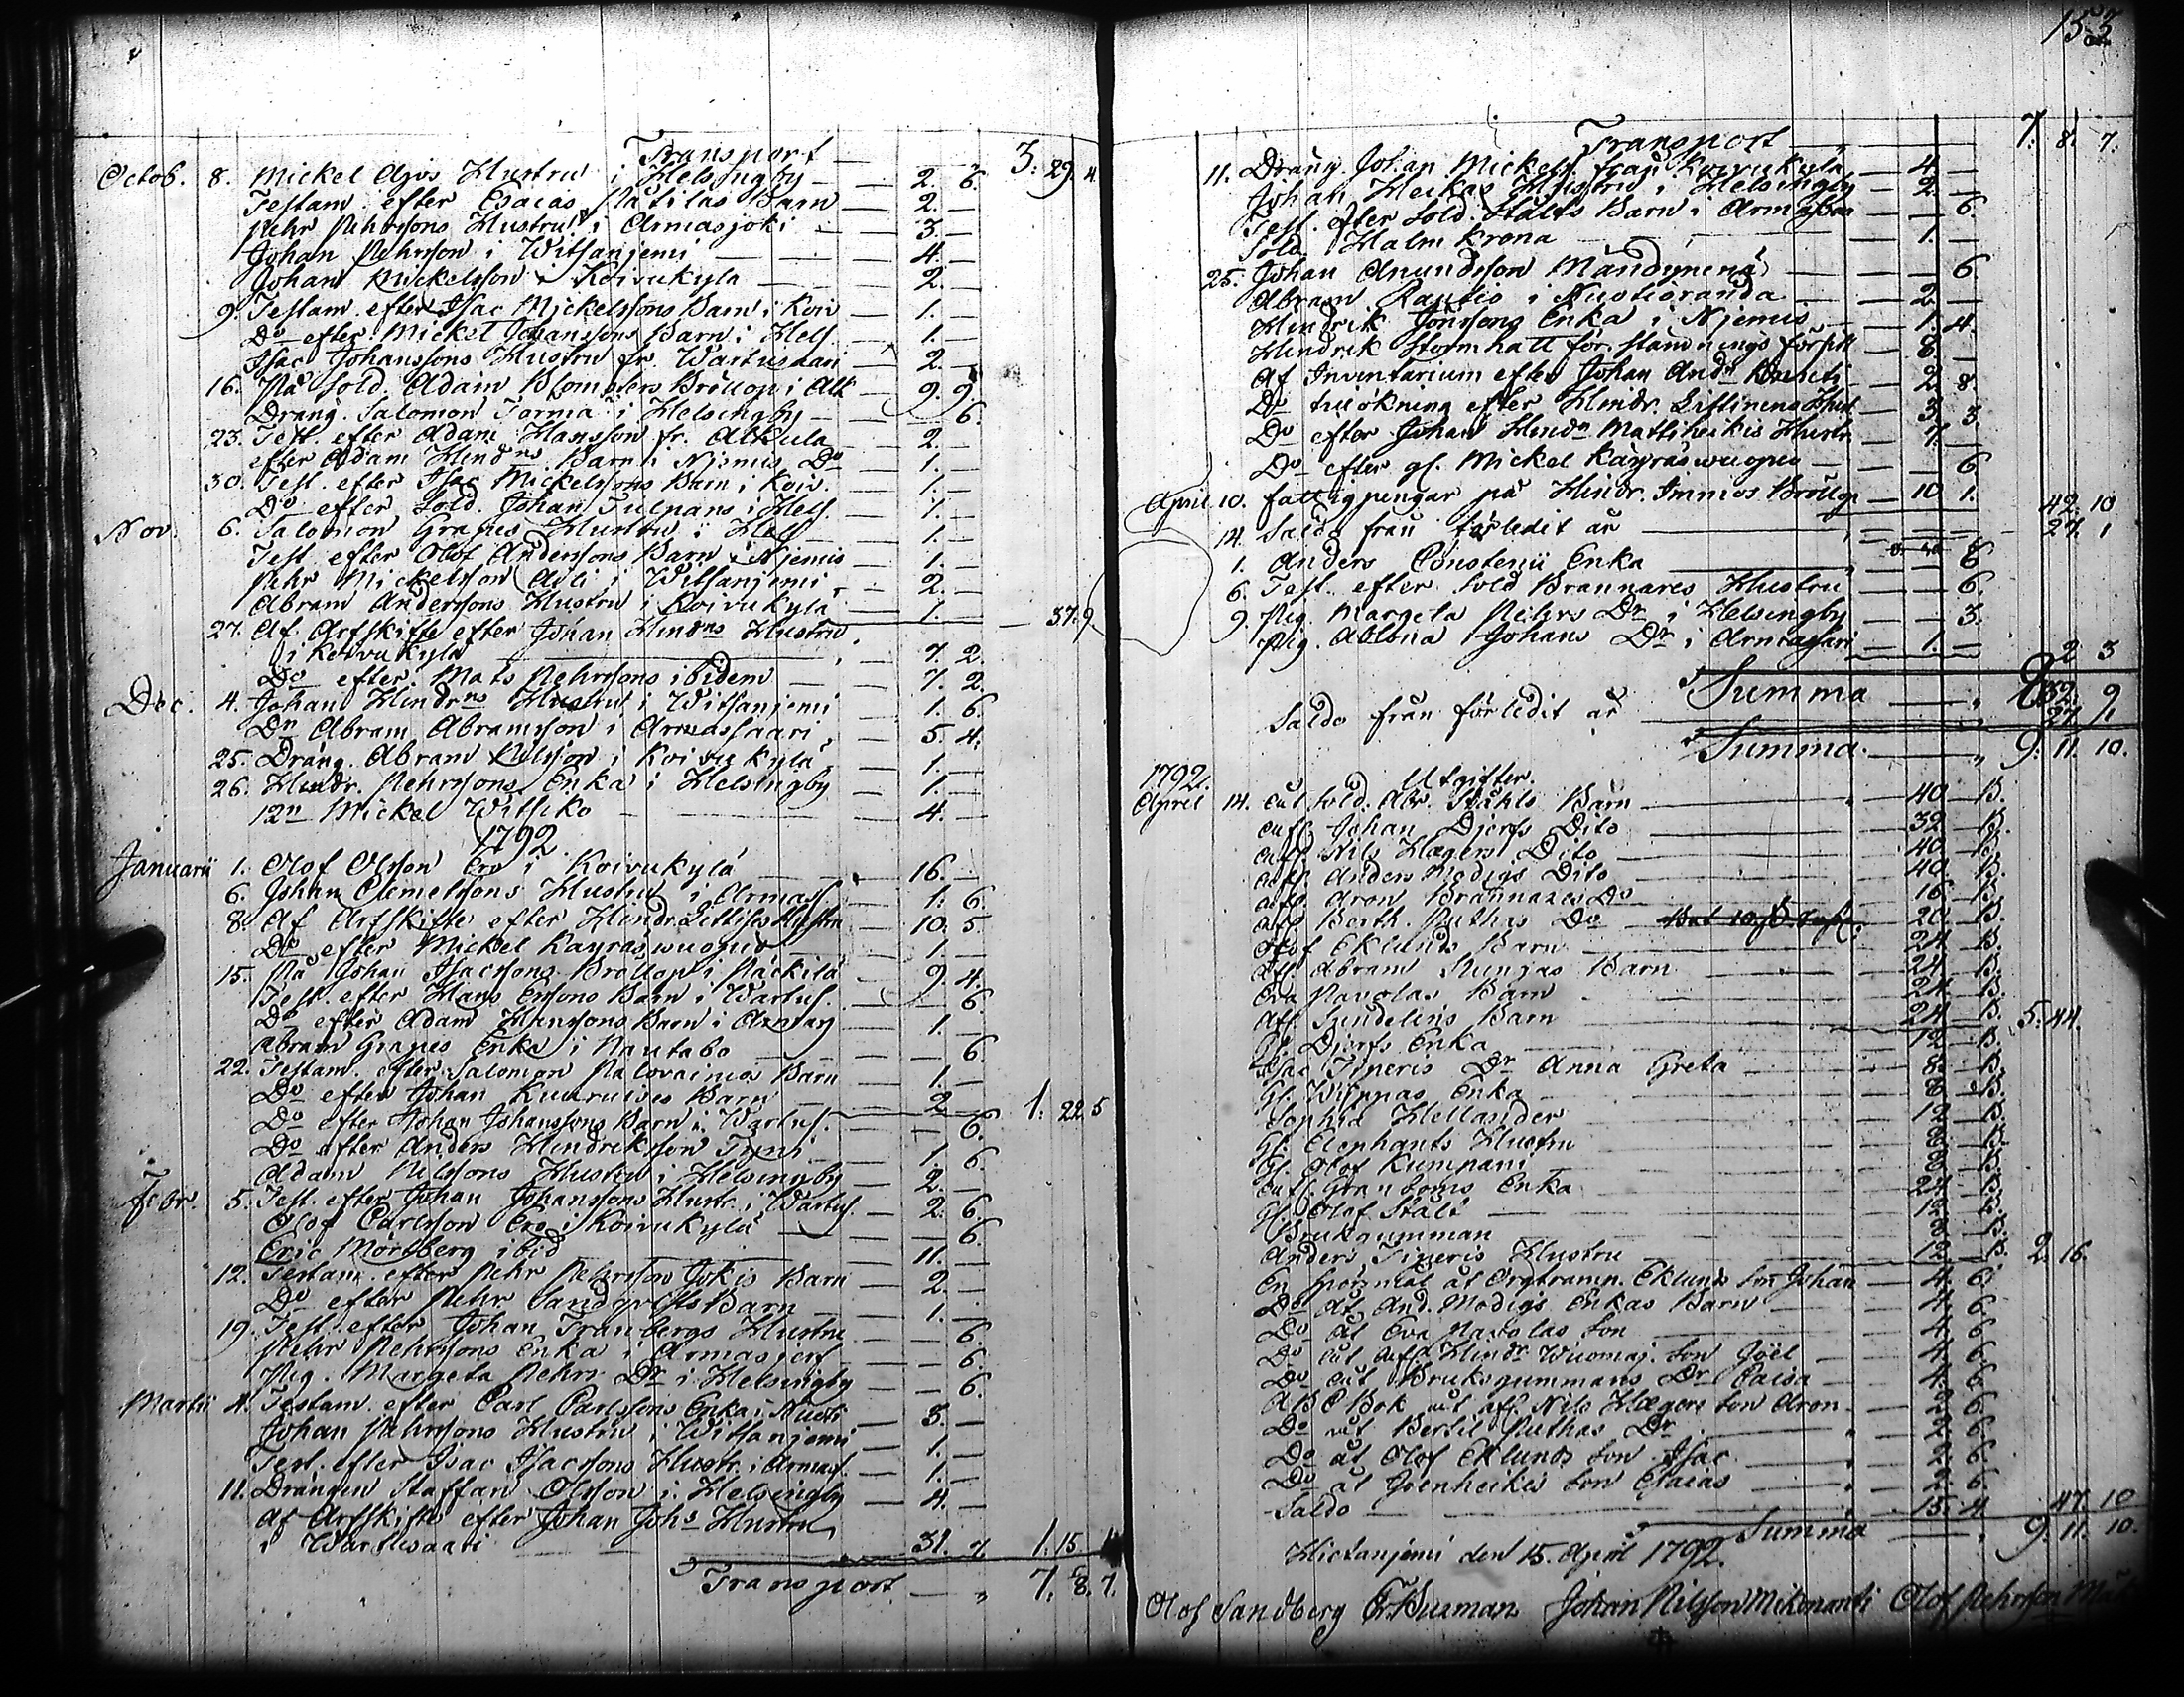 Transport — 3. 29. 4
Octob. 8. Mickel Ajos Hustru i Helsingby — 2. 6.
Testam. efter Esaias Barn — 2. —
Pehr Pehrssons Hustru i Armasjoki — 3. —
Johan Pehrsson i Witsanjemi — 4. —
Johan Mickelsson i Koivukyla — 2. —
9. Testam. efter Isac Mickelssons Barn i Koiv — 1. —
Do efter Mickel Johanssons Barn i Hels. — 1. —
Isac Johanssons Hustru fr. Wartusaari — 2. —
16. På Sold. Adam Blomsters Bröllop i Alk — 9. 9.
Dräng. Salomon Torma i Helsingby — 6.
23. Test. efter Adam Hansson fr. Alkula — 2. —
efter Adam Hindns Barn i Njemis Do — 1. —
30. Test. efter Isac Mickelssons Barn i Koiv. — 1. —
Do efter Sold. Johan Tulpans i Hels. — 1. —
Nov. 6. Salomon Grapes Hustru i Hels — 1. —
Test. efter Olof Anderssons Barn i Njemis — 1. —
Pehr Mickelsson i Witsanjemi — 2. —
Abram Anderssons Hustru i Koivukyla — 1. — 37. 9.
27. Af Arfskifte efter Johan Hindns Hustru
i Koivukyla — 7. 2.
Do efter Mats Pehrssons ibidem — 7. 2.
Dec. 4. Johan Hindrns Hustru i Witsanjemi — 1. 6.
Dn Abram Abramsson i Armassaari — 5. 4.
25. Dräng. Abram Nilsson i Koivukyla — 1. —
26. Hindr. Pehrssons Enka i Helsingby — 1. —
12n Mickel Witsiko — 4. —
1792
Januarii 1. Olof Olsson Ero i Koivukylä — 16. —
6. Johan Clemetsons Hustru i Armass. — 1. 6.
8. Af Arfskifte efter Hindr. Hustru — 10. 5.
Do efter Mickel Kayraswuopio — 1. —
15. På Johan Isacssons Bröllop i Päckilä — 9. 4.
Test. efter Hans Ersons Barn i Wartus. — 6.
Do efter Adam Hanssons Barn i Armas — 1. —
Abram Grapes Enka i Rautabo — 6.
22. Testam. efter Salomon Palovainios Barn — 1. —
Do efter Johan Barn — 2. — 1. 22. 5
Do efter Johan Johanssons Barn i Wartus. — 6.
Do efter Anders Hindriksson — 1. 6.
Adam Nilssons Hustru i Helsingby — 2. —
Febr. 5. Test. efter Johan Johanssons Hustr. i Wartus. — 2. 6.
Olof Carlsson Ero i Koivukyla — 6.
Eric Mörtberg ibid — 11. —
12. Testam. efter Pehr Pehrsson Jokis Barn — 2. —
Do efter Pehr Sandqvists Barn — 1. —
19. Test. efter Johan Tranbergs Hustru — 6.
Pehr Pehrssons Enka i Armasjerf — 6.
Pig. Margeta Pehrs Dr i Helsingby — 6.
Martii 4. Testam. efter Carl Carlssons Enka i — 3. —
Johan Pehrssons Hustru i Witsanjemi — 1. —
Test. efter Isac Isacssons Hustr. i Armass. — 1. —
11. Drängen Staffan Olsson i Helsingby — 4. —
Af Arfskifte efter Johan Johs Hustru
i Wartusaari — 31. 7. 1. 15.
Transport — 7. 8. 7.
153
Transport — 7. 8. 7.
11. Dräng. Johan Mickels. från Koivukyla — 4. —
Johan Heikas Hustru i Helsingby — 2. —
Test. efter Sold. Ståls Barn i Armassaa — 6.
Sold. Halmkrona — 1. —
25. Johan Anundsson Mändynenä — 6.
Abram Rautio i — 2. —
Hindrik Jönssons Enka i Njemis — 1. 4.
Hindrik Stormhatt för stämnings — 8. —
Af Inventarium efter Johan Andn — 2. 8.
Do tillökning efter Hindr. — 3. 3.
Do efter Johan Hindn Mattiheikis Hustr. — 7. —
Do efter gl. Mickel Kayräswuopio — 6.
April 10. fattigpengar på Hindr. Immos Bröllop — 10. 1. 42. 10
14. Saldo från förledit år — 27. 1
1. Anders Constenii Enka — 8
6. Test. efter Sold Brännares Hustru — 6.
9. Pig. Margeta Pehrs Dr i Helsingby — 3.
Pig. Albina Johans Dr i Armassari — 1. — 2 3
Summa — 9
Saldo från förledit år — 27. 1.
Summa — 9. 11. 10.
1792. Utgifter.
April 14. åt Sold. Abr. Ståhls Barn — 40 — B.
aft. Johan Djerfs Dito — 32 — B.
aft. Nils Hægers Dito — 40 — B.
aft. Anders Modigs Dito — 40. B.
aft. Aron Brännares Do — 16 B.
aft. Berth. Puthas Do — 20 — B.
Olof Eklunds Barn — 24 B.
Aft Abram Barn — 24 B.
Eva Navolas Barn — 24 B.
Aft Sundelins Barn — 24 B. 5. 44.
Gl. Djerfs Enka — 12 — B.
Isac Tineris Dr Anna Greta — 8 — B.
Gl. Enka — 8 — B.
Sophia Hellander — 12 — B.
Gl. Elephants Hustru — 8 — B.
Gl. Olof Kumpani — 8 — B.
aft. Granboms Enka — 24 B.
Gl. Olof Stålt — 12 B.
Bruksgumman — 8 — B.
Anders Tineris Hustru — 12 — B. 2. 16.
En åt Orgtramp. Eklunds Son Johan — 4. 6.
Do åt And. Modigs Enkas Barn — 4. 6.
Do åt Eva Navolas Son — 4. 6
Do åt aft Hindr Wuomaj. Son Joël — 4. 6.
Do åt Bruksgummans Dr Caisa — 4. 6.
ABC Bok åt aft. Nils Hægers Son Aron — 2. 6.
Do åt Bertil Puthas Dr — 2. 6.
Do åt Olof Eklunds Son Isac — 2. 6.
Do åt Joenheikis Son Esaias — 2. 6.
Saldo — 15. 4 47. 10
Summa — 9. 11. 10.
Hietanjemi den 15. April 1792.
Olof Sandberg Johan Nilsson Mikonanti Olof Pehrsson